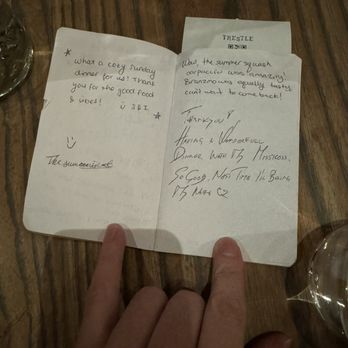 What a cozy Sunday
dinner for us! Thank
you for the good food
& vibes!
The
TRESTLE
Wow, the summer squash
carpaccio was amazing!
Branzino was equally tasty
can't wait to come back!
Thank you
Having a Wonderful
Dinner With My
So Good. Next Time I'll Bring
My